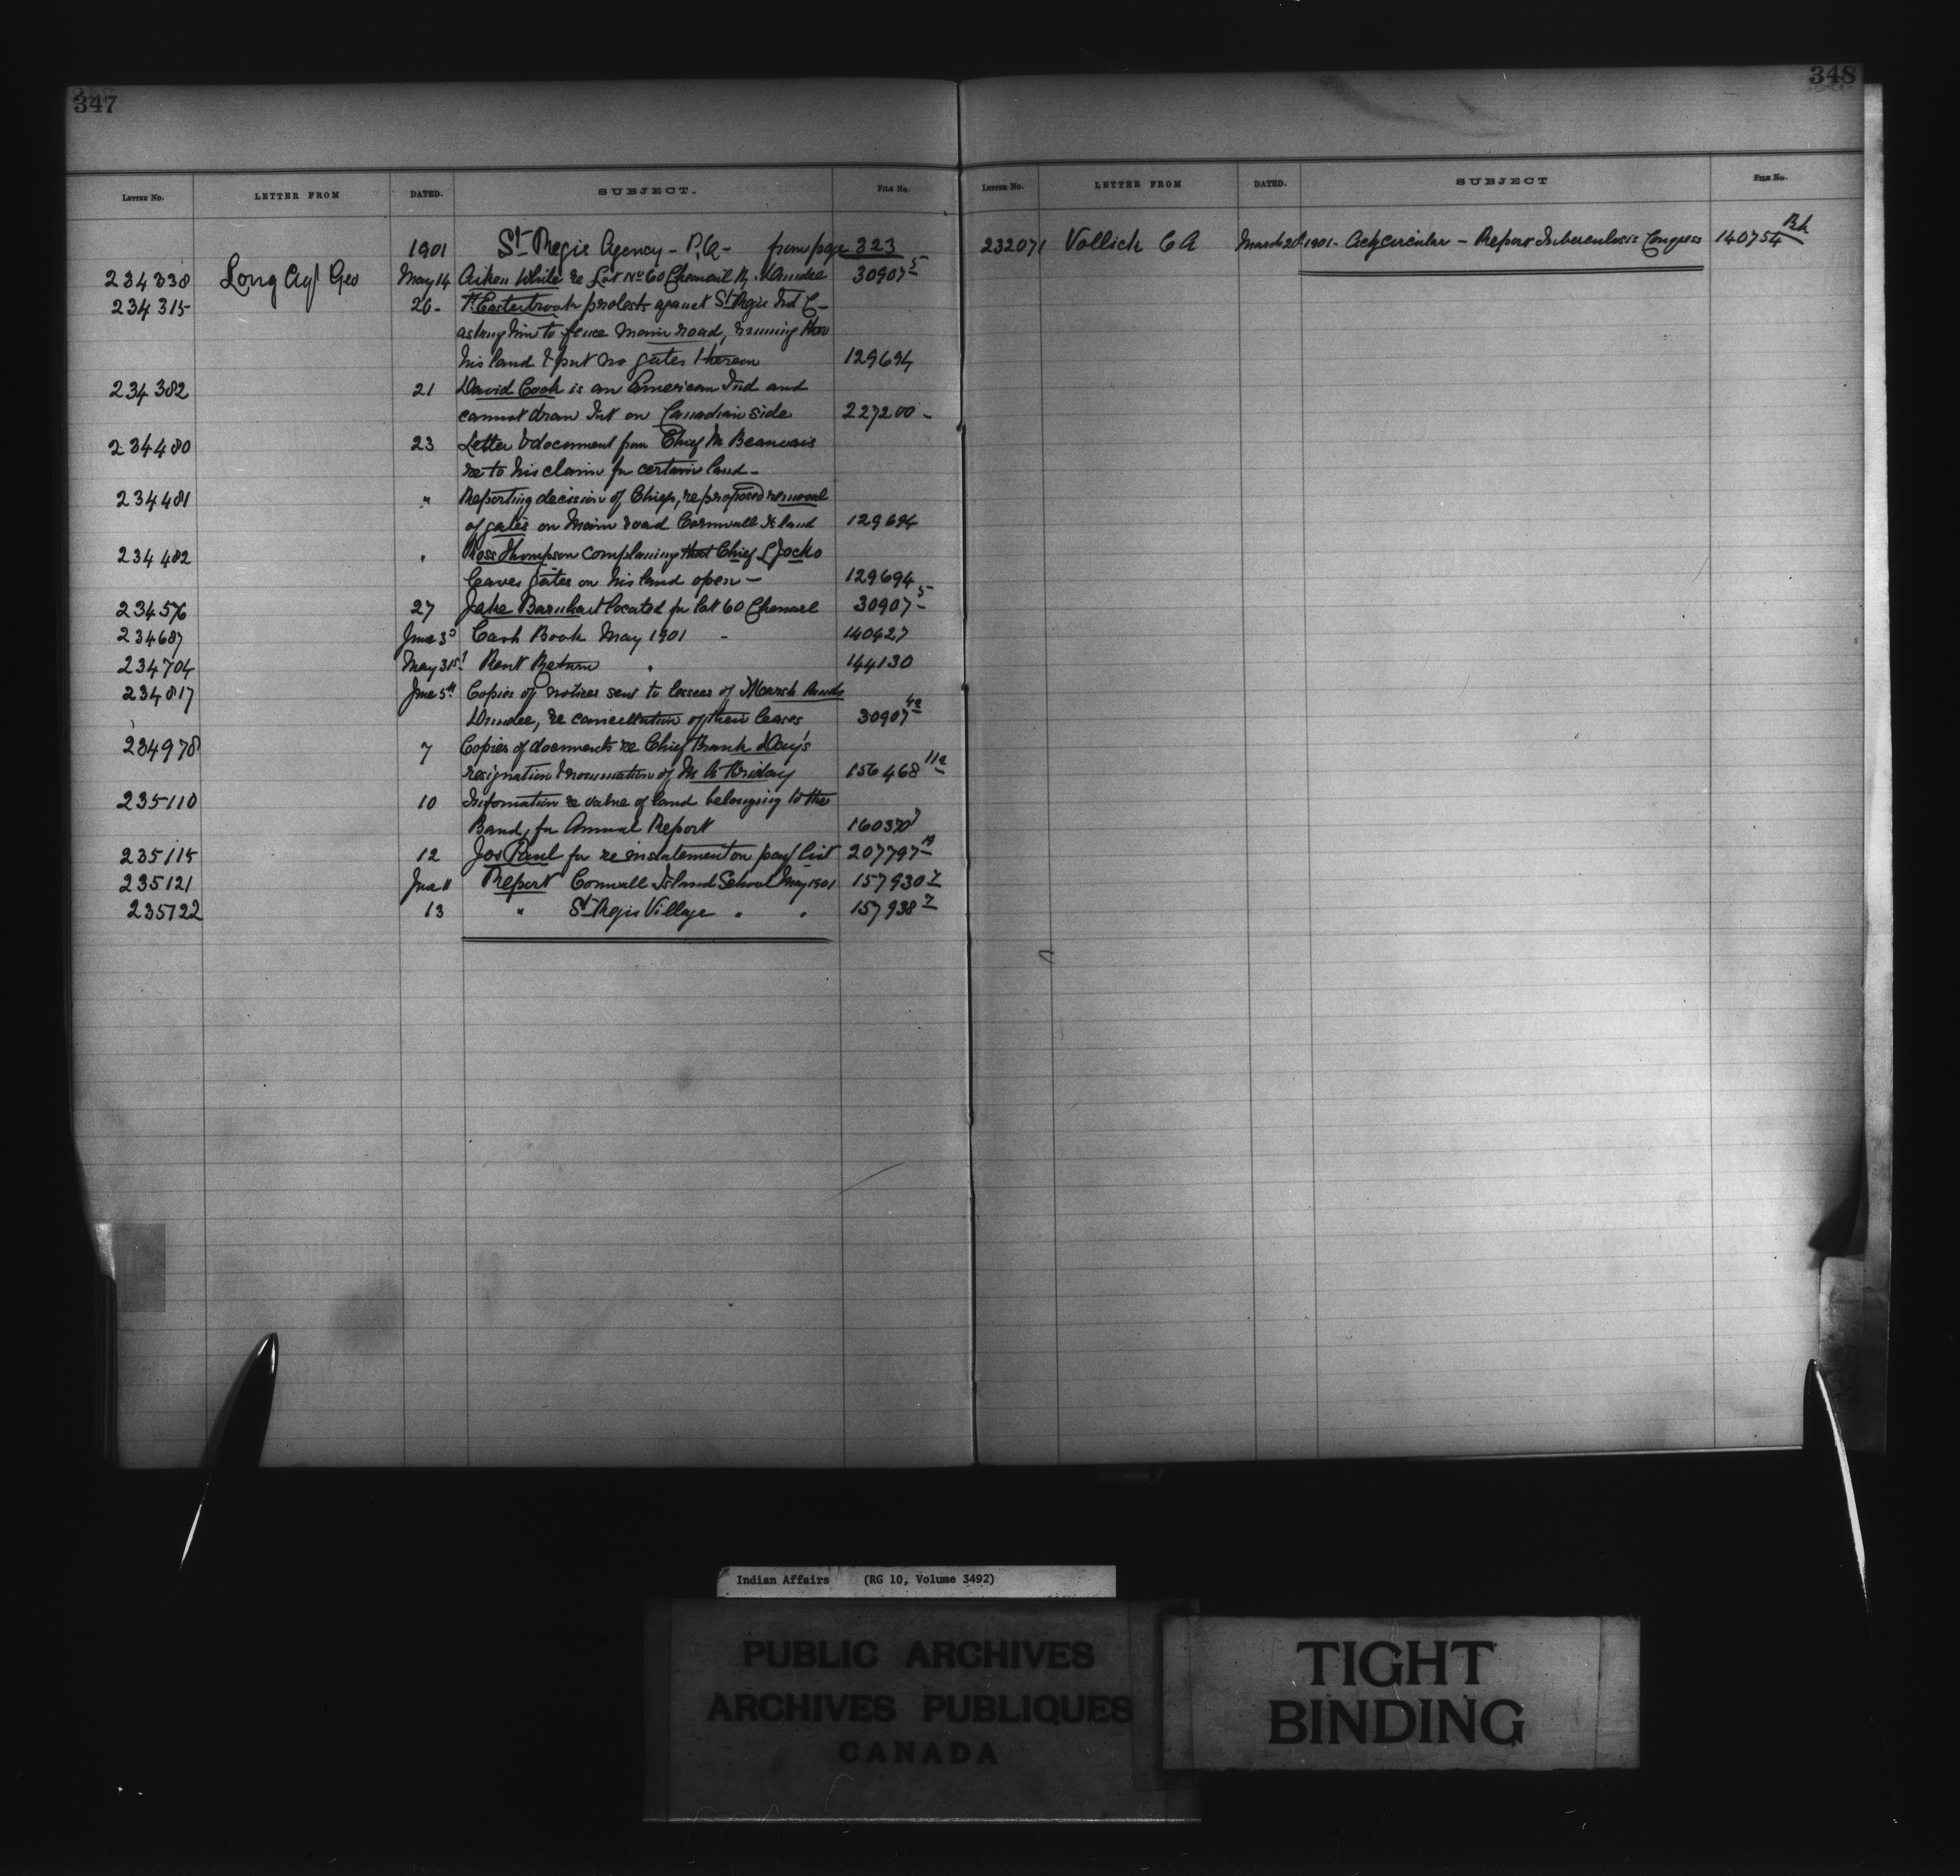 347
LETTER NO. LETTER FROM DATED. SUBJECT. FILE NO.
1901 St Regis Agency - P.Q - from page 323
234338 Long Agt Geo May 14 Aiken White re Lot No 60 Chenail R. Dundee 30907 5
234315 20 - Easterbrook protests against St Regis Ind C-
asking him to fence main road, running thro
his land & put no gates thereon 129694
234382 21 David Cook is an American Ind and
cannot draw Int on Canadian side 227200 -
234480 23 Letter & document from Chief M Beauvais
re to his claim for certain land -
234481 " Reporting decision of Chiefs, re proposed removal
of gates on Main road Cornwall Island 129694
234482 " Ross Thompson complaining that Chief L Jocko
leaves gates on his land open - 129694
234576 27 Jake Barnhart located for lot 60 Chenail 30907 5
234687 June 3d Cash Book May 1901 - 140427
234704 May 31st Rent Return " 144130
234817 June 5th Copies of notices sent to lessees of Marsh lands
Dundee, re cancellation of their leases 30907 4a
234978 7 Copies of documents re Chief Frank Day's
resignation & nomination of M A Friday 156468 11a
235110 10 Information re value of land belonging to the
Band, for Annual Report 160370
235115 12 Jos Paul for re instatement on pay list 207797 19
235121 June 11 Report Cornwall Island School May 1901 157930 2
235122 13 " St Regis Village " " 157938 2
348
LETTER NO. LETTER FROM DATED. SUBJECT FILE NO.
232071 Vollick C A March 20th 1901 - Ackg circular - Report Tuberculosis Congress 140754
Indian Affairs (RG 10, Volume 3492)
PUBLIC ARCHIVES
ARCHIVES PUBLIQUES
CANADA
TIGHT
BINDING